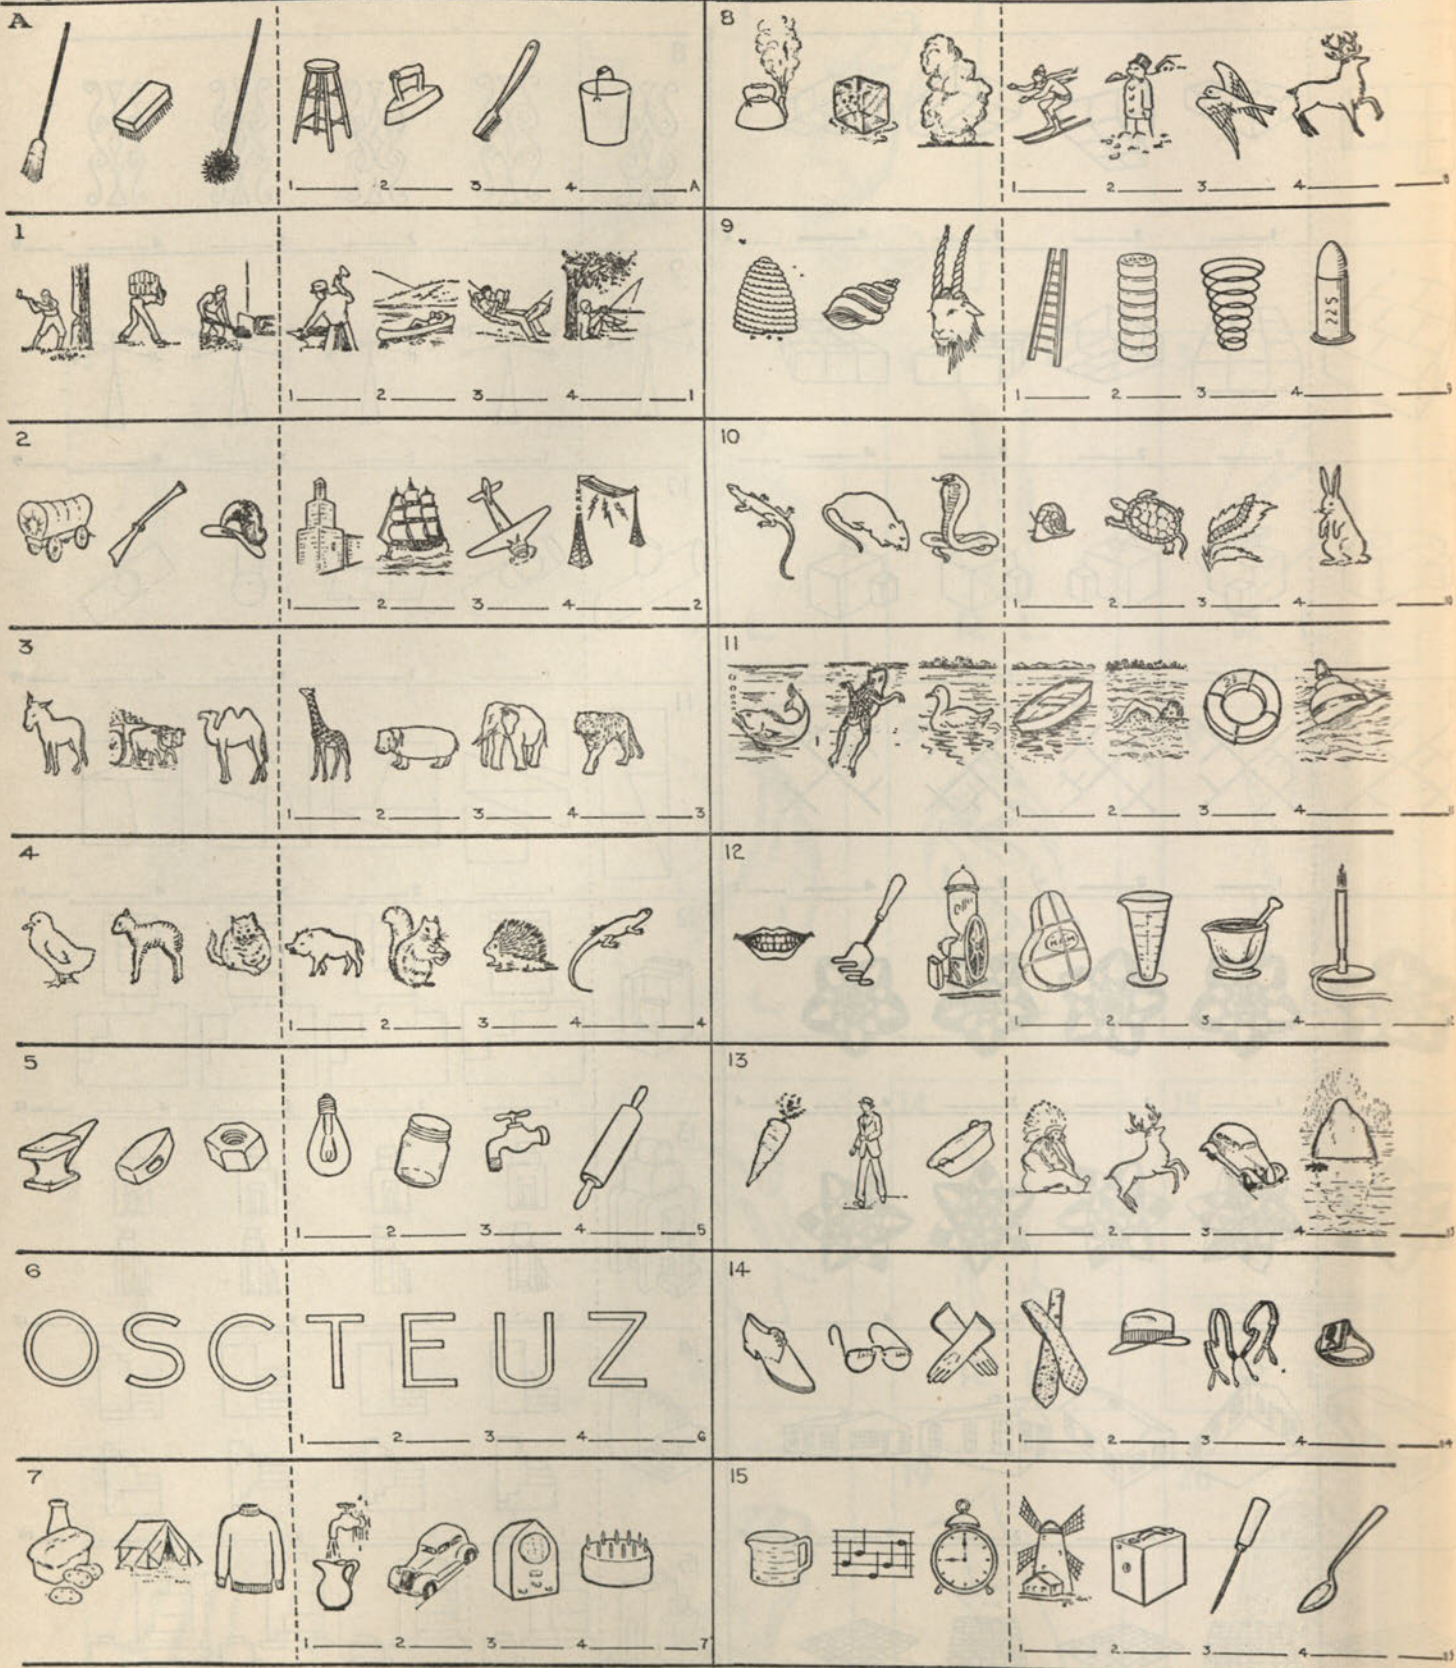 A
1 2 3 4 A
1
1 2 3 4 1
2
1 2 3 4 2
3
1 2 3 4 3
4
1 2 3 4 4
5
1 2 3 4 5
6
O S C T E U Z
1 2 3 4 6
7
1 2 3 4 7
8
1 2 3 4 8
9
225
1 2 3 4 9
10
1 2 3 4 10
11
1 2 3 4 11
12
HAM
1 2 3 4 12
13
1 2 3 4 13
14
1 2 3 4 14
15
1 2 3 4 15